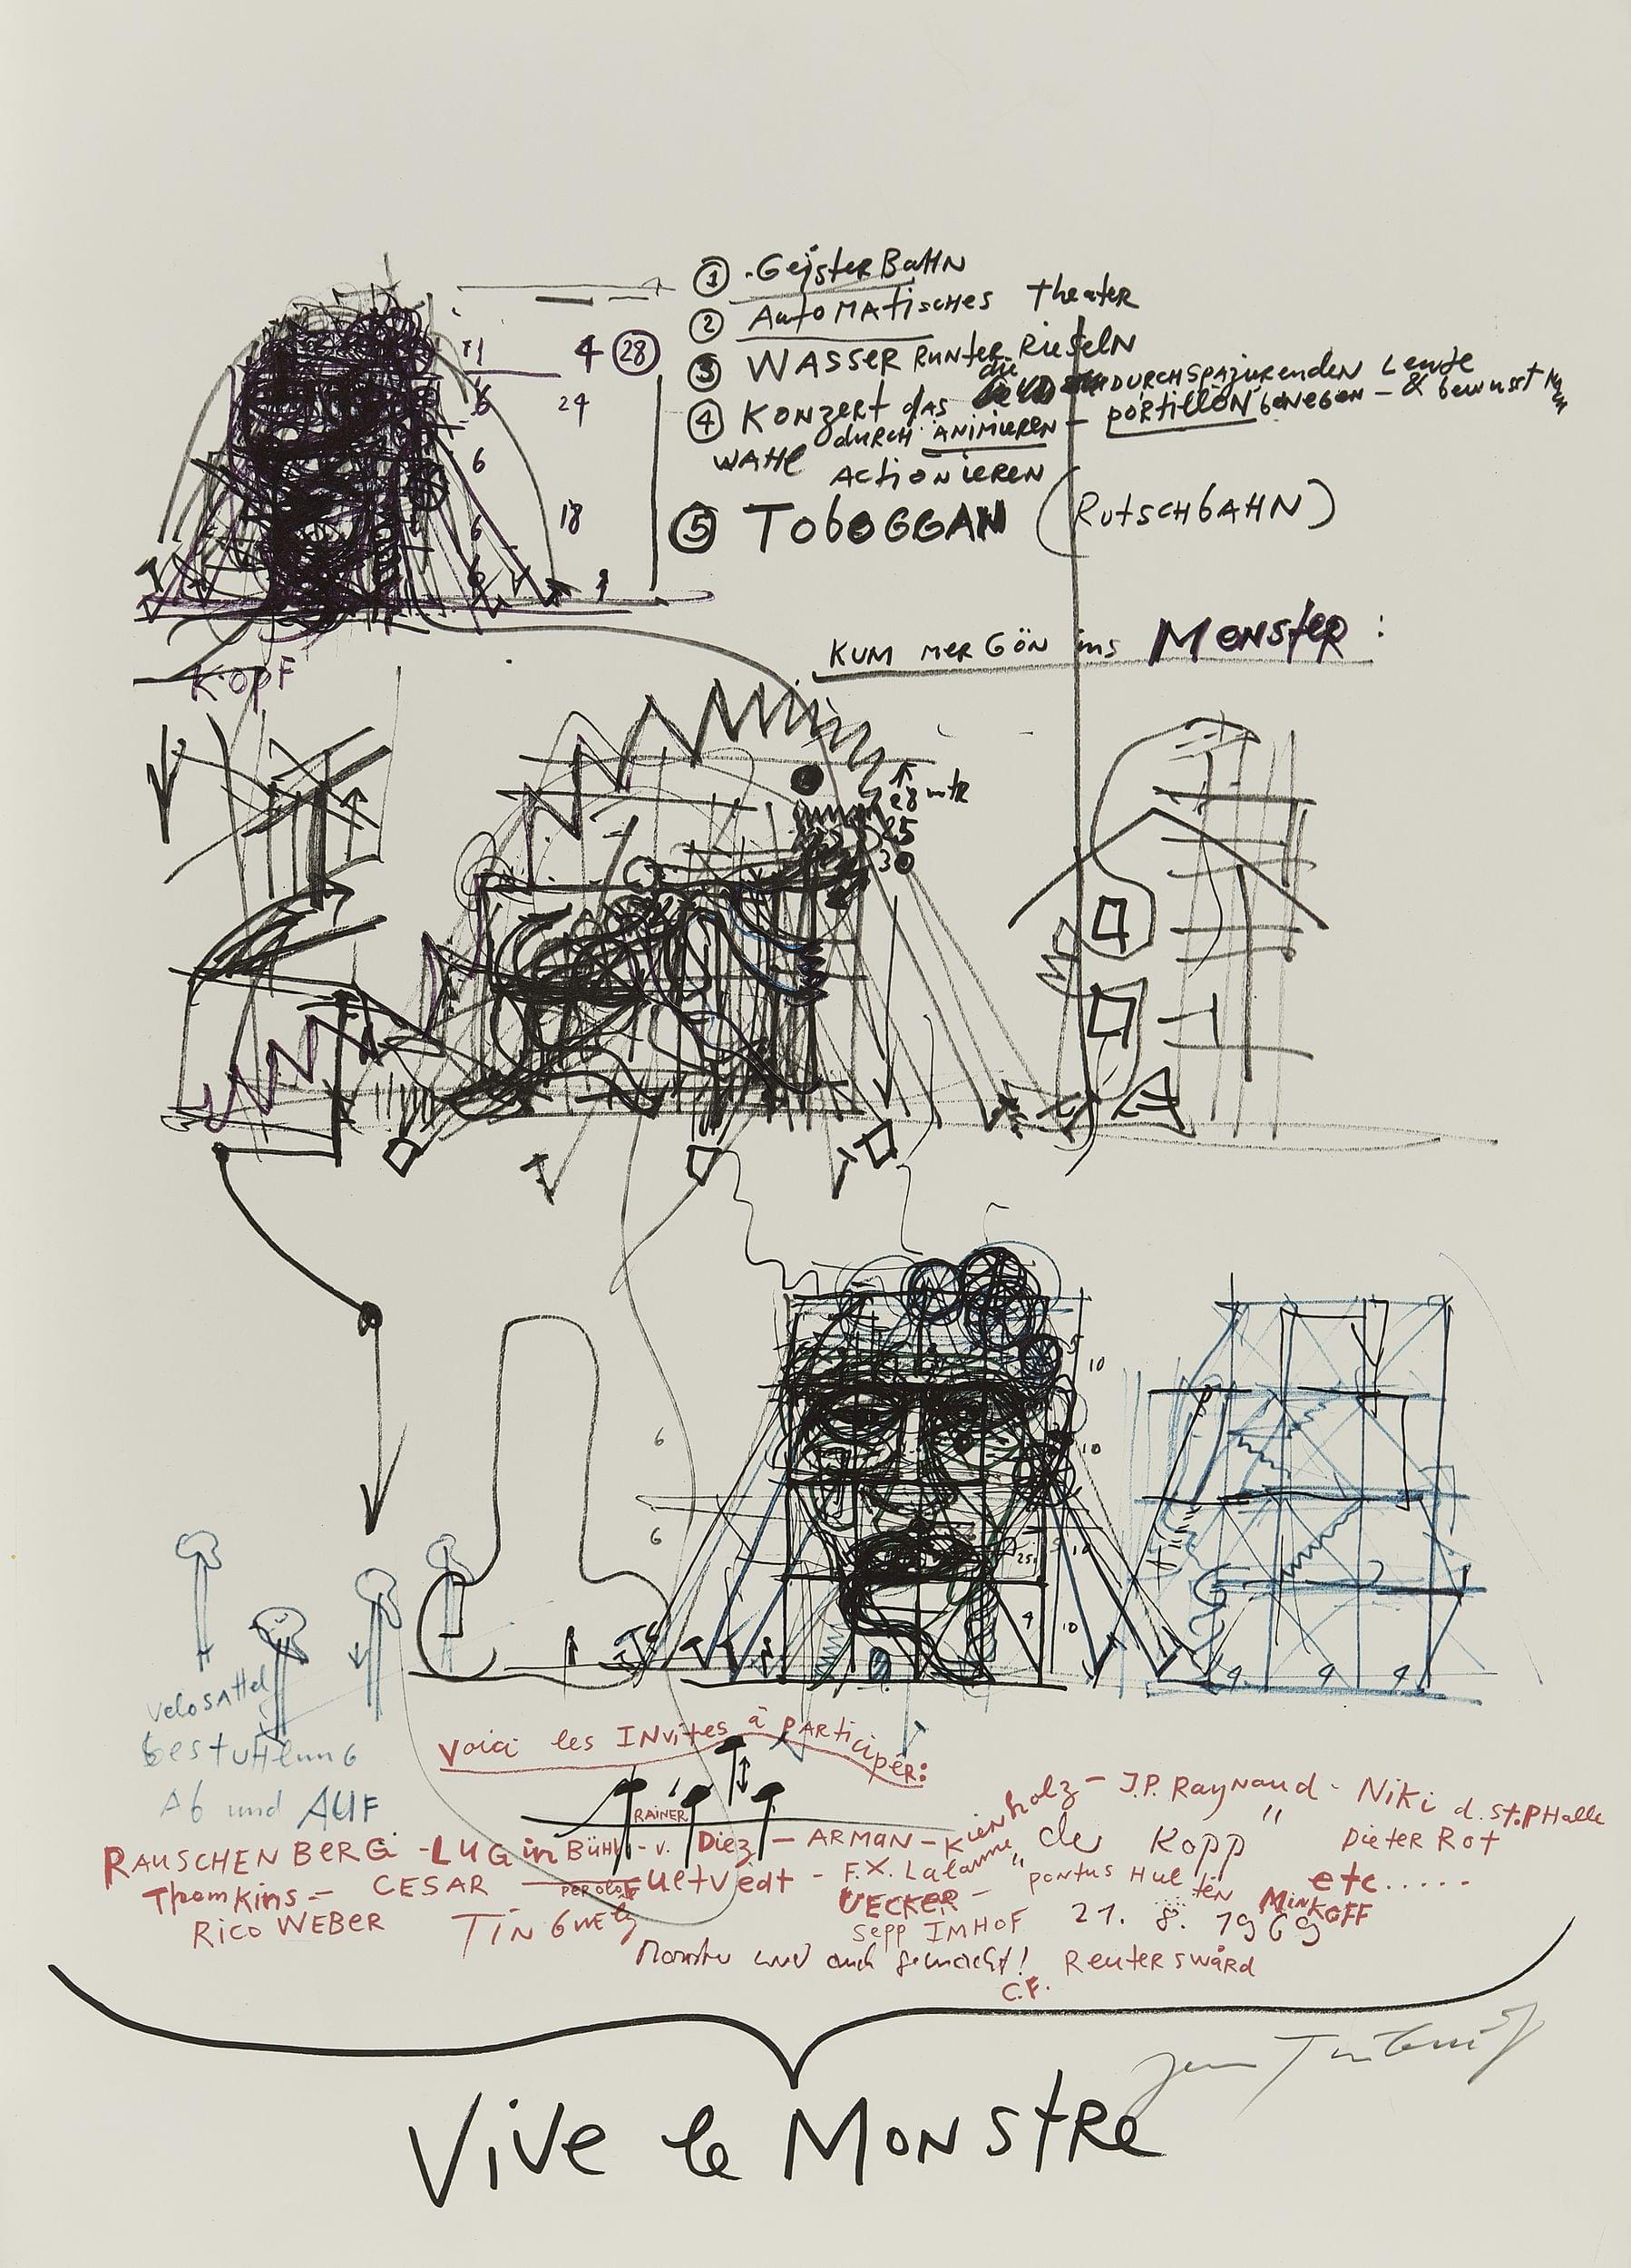 ① GeisterBahn
② Automatisches Theater
③ WASSER RUNTER Rieseln
④ Konzert das die DURCHSPAZIERENDEN Leute
durch ANIMIEREN - portillon bewegen - & bewusst
WAHL
ACTIONIEREN
⑤ TOBOGGAN (RUTSCHBAHN)
1 4 ㉘
6 24
6
6 18
6
KOPF
KUM MER GÖN ins MONSTER:
28 mtr
25
30
10
6 10
6 10
25
4 10
4 4 4
Velosattel
bestuhlung
Ab und AUF
Voici les INvites à PARticiper:
RAINER
Kienholz - J.P. Raynaud - Niki d. St. PHalle
RAUSCHENBERG - LUGinBÜHl - v. Diez - ARMAN - " der Kopp " Dieter Rot
Thomkins - CESAR - PER OLOF Ultvedt - F.X. Lalanne " pontus Hulten etc.....
UECKER - MinkOFF
Rico WEBER TinGuely Sepp IMHOF 21. 8. 1969
Monster wird auch gemacht! C.F. Reuterswård
Jean Tinguely
Vive le MONSTRe